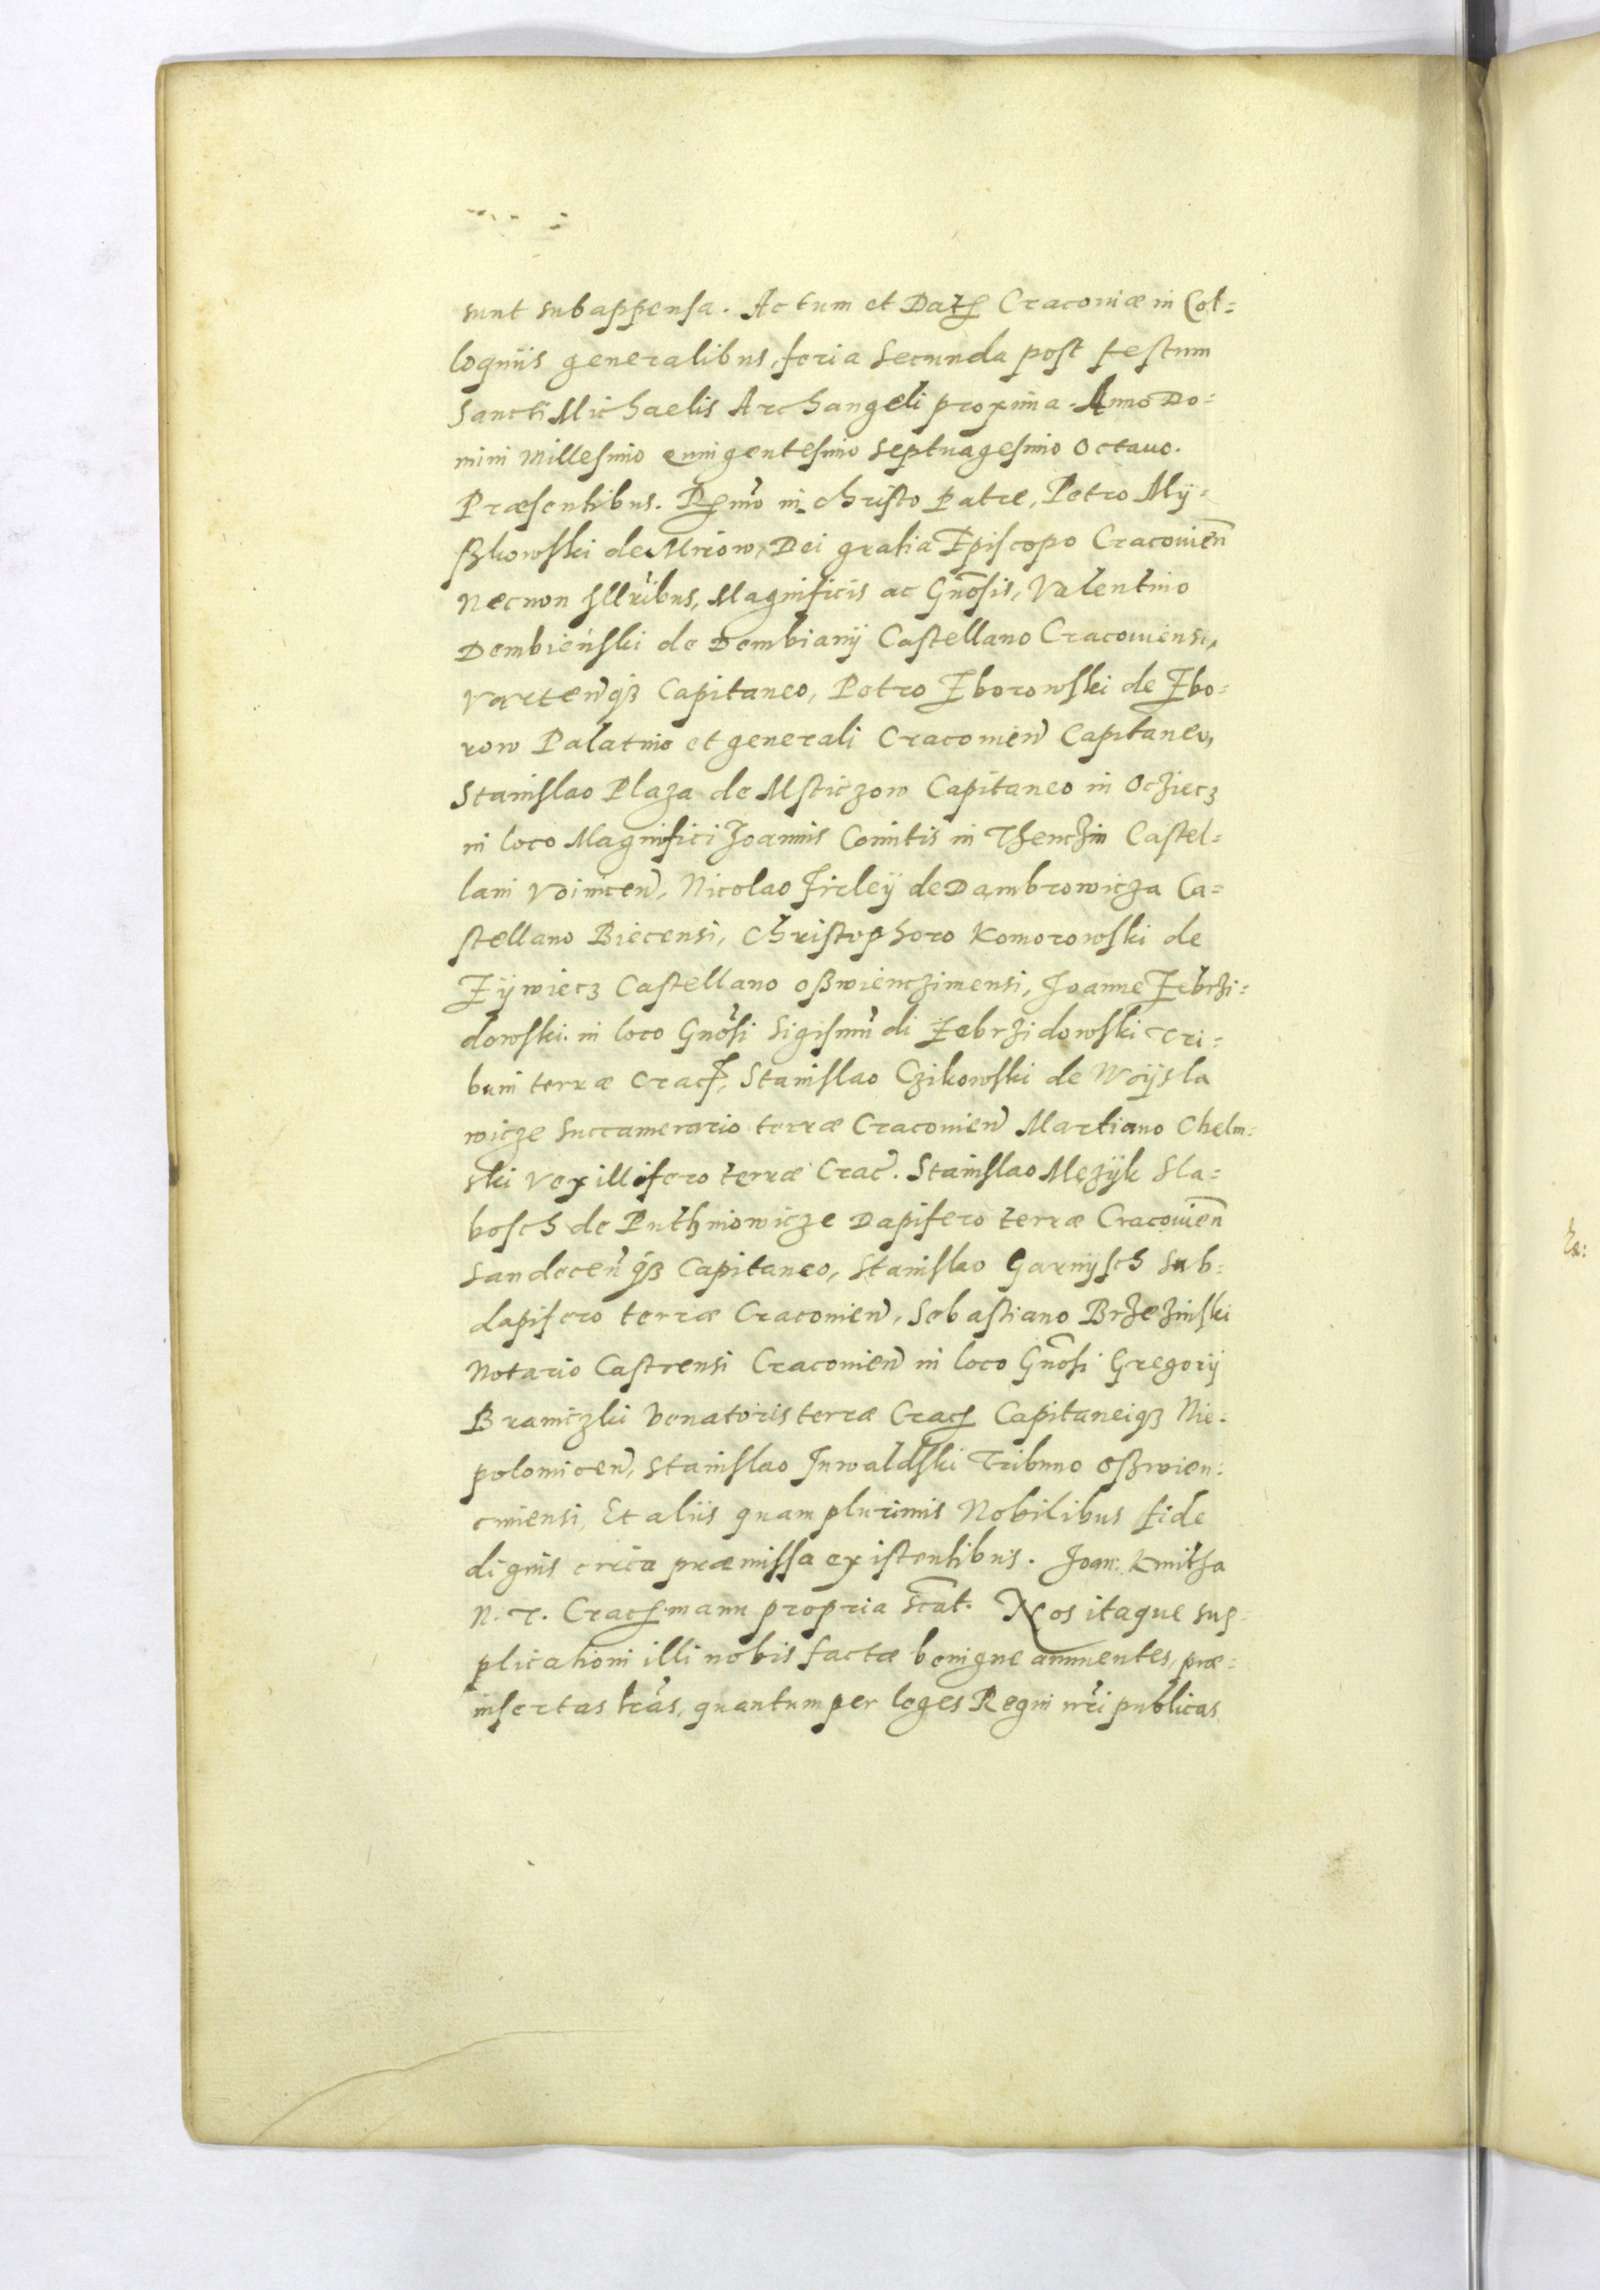 sunt subappensa. Actum et Dat Cracouiæ in Col=
loquiis generalibus, feria Secunda post festum
Sancti Michaelis Archangeli proxima. Anno Do=
mini Millesimo quingentesimo Septuagesimo Octauo.
Præsentibus. Rmo in christo Patre, Petro My=
ßkowski de Mirow, Dei gratia Episcopo Cracouien̄
Necnon Illribus, Magnificis ac Gnōsis, Valentino
Dembieński de Dembianÿ Castellano Cracouiensi,
Varten̄qȝ Capitaneo, Petro Zborowski de Zbo=
row Palatino et generali Cracouien̄ Capitaneo,
Stanislao Plaza de Msticzow Capitaneo in Ocziecz
in loco Magnifici Joannis Comitis in Thenczin Castel=
lani Voinicen̄, Nicolao Firleÿ de Dambrowicza Ca=
stellano Biecensi, Christophoro Komorowski de
Zÿwiecz Castellano oßwienczimensi, Joanne Zebrzi=
dowski in loco Gnōsi Sigismūdi Zebrzidowski Tri=
buni terræ Crac, Stanislao Czikowski de Woÿsla
wicze Succamerario terræ Cracouien̄ Martiano Chelm=
ski Vexillifero terræ Crac̄. Stanislao Mężÿk Sla=
bosch de Puthniowicze Dapifero terræ Cracouien̄
Sandecen̄qȝ Capitaneo, Stanislao Garnÿsch Sub=
dapifero terræ Cracouien̄, Sebastiano Brzezinski
Notario Castrensi Cracouien̄ in loco Gnōsi Gregorÿ
Braniczki Venatoris terræ Crac Capitaneiqȝ Nie=
polomicen̄, Stanislao Inwaldski Tribuno oßwien=
cimiensi, Et aliis quam plurimis Nobilibus fide
dignis circa præmissa existentibus. Joan: Kmitha
N. T. Crac manu propria Scāt. Nos itaque sup=
plicationi illi nobis factæ benigne annuentes, præ=
insertas lrās, quantum per leges Regni nr̄i publicas